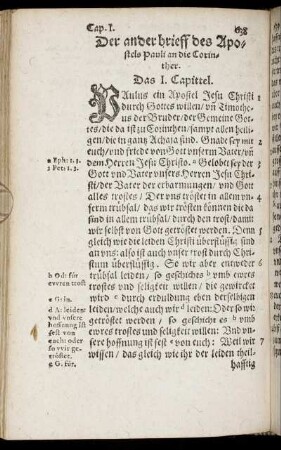 Cap. I.
Der ander brieff des Apo-
stels Pauli an die Corin-
ther.
Das I. Capittel.
PAulus ein Apostel Jesu Christi 1
durch Gottes willen/ vñ Timothe-
us der Bruder/ der Gemeine Got-
tes/ die da ist zu Corinthen/ sampt allen heili-
gen/ die in gantz Achaia sind. Gnade sey mit 2
euch/ und friede von Gott unserm Vater/ uñ
dem Herren Jesu Christo. a Gelobt sey der 3
Gott und Vater unsers Herren Jesu Chri-
sti/ der Vater der erbarmungen/ und Gott
alles trostes/ Der uns tröstet in allen un- 4
serm trübsal/ das wir trösten können die da
sind in allem trübsal/ durch den trost/ damit
wir selbst von Gott getröstet werden. Denn 5
gleich wie die leiden Christi überflüssig sind
an uns: also ist auch unser trost durch Chri-
stum überflüssig. So wir aber entweder 6
trübsal leiden/ so geschichts b umb ewres
trostes und seligkeit willen/ die gewircket
wird c durch erduldung eben derselbigen
leiden/ welche auch wir d leiden: Oder so wir
getröstet werden/ so geschicht es umb
ewres trostes und seligkeit willen: Und un-
sere hoffnung ist fest e von euch: Weil wir 7
wissen/ das gleich wie ihr der leiden theil-
hafftig
a Eph: 1. 3.
1 Pet: 1. 3.
b Od: für
ewren trost
c Gr: in.
d A: leiden:
und unsere
hoffnung ist
fest von
euch: oder
so wir ge-
tröstet.
e G. für.